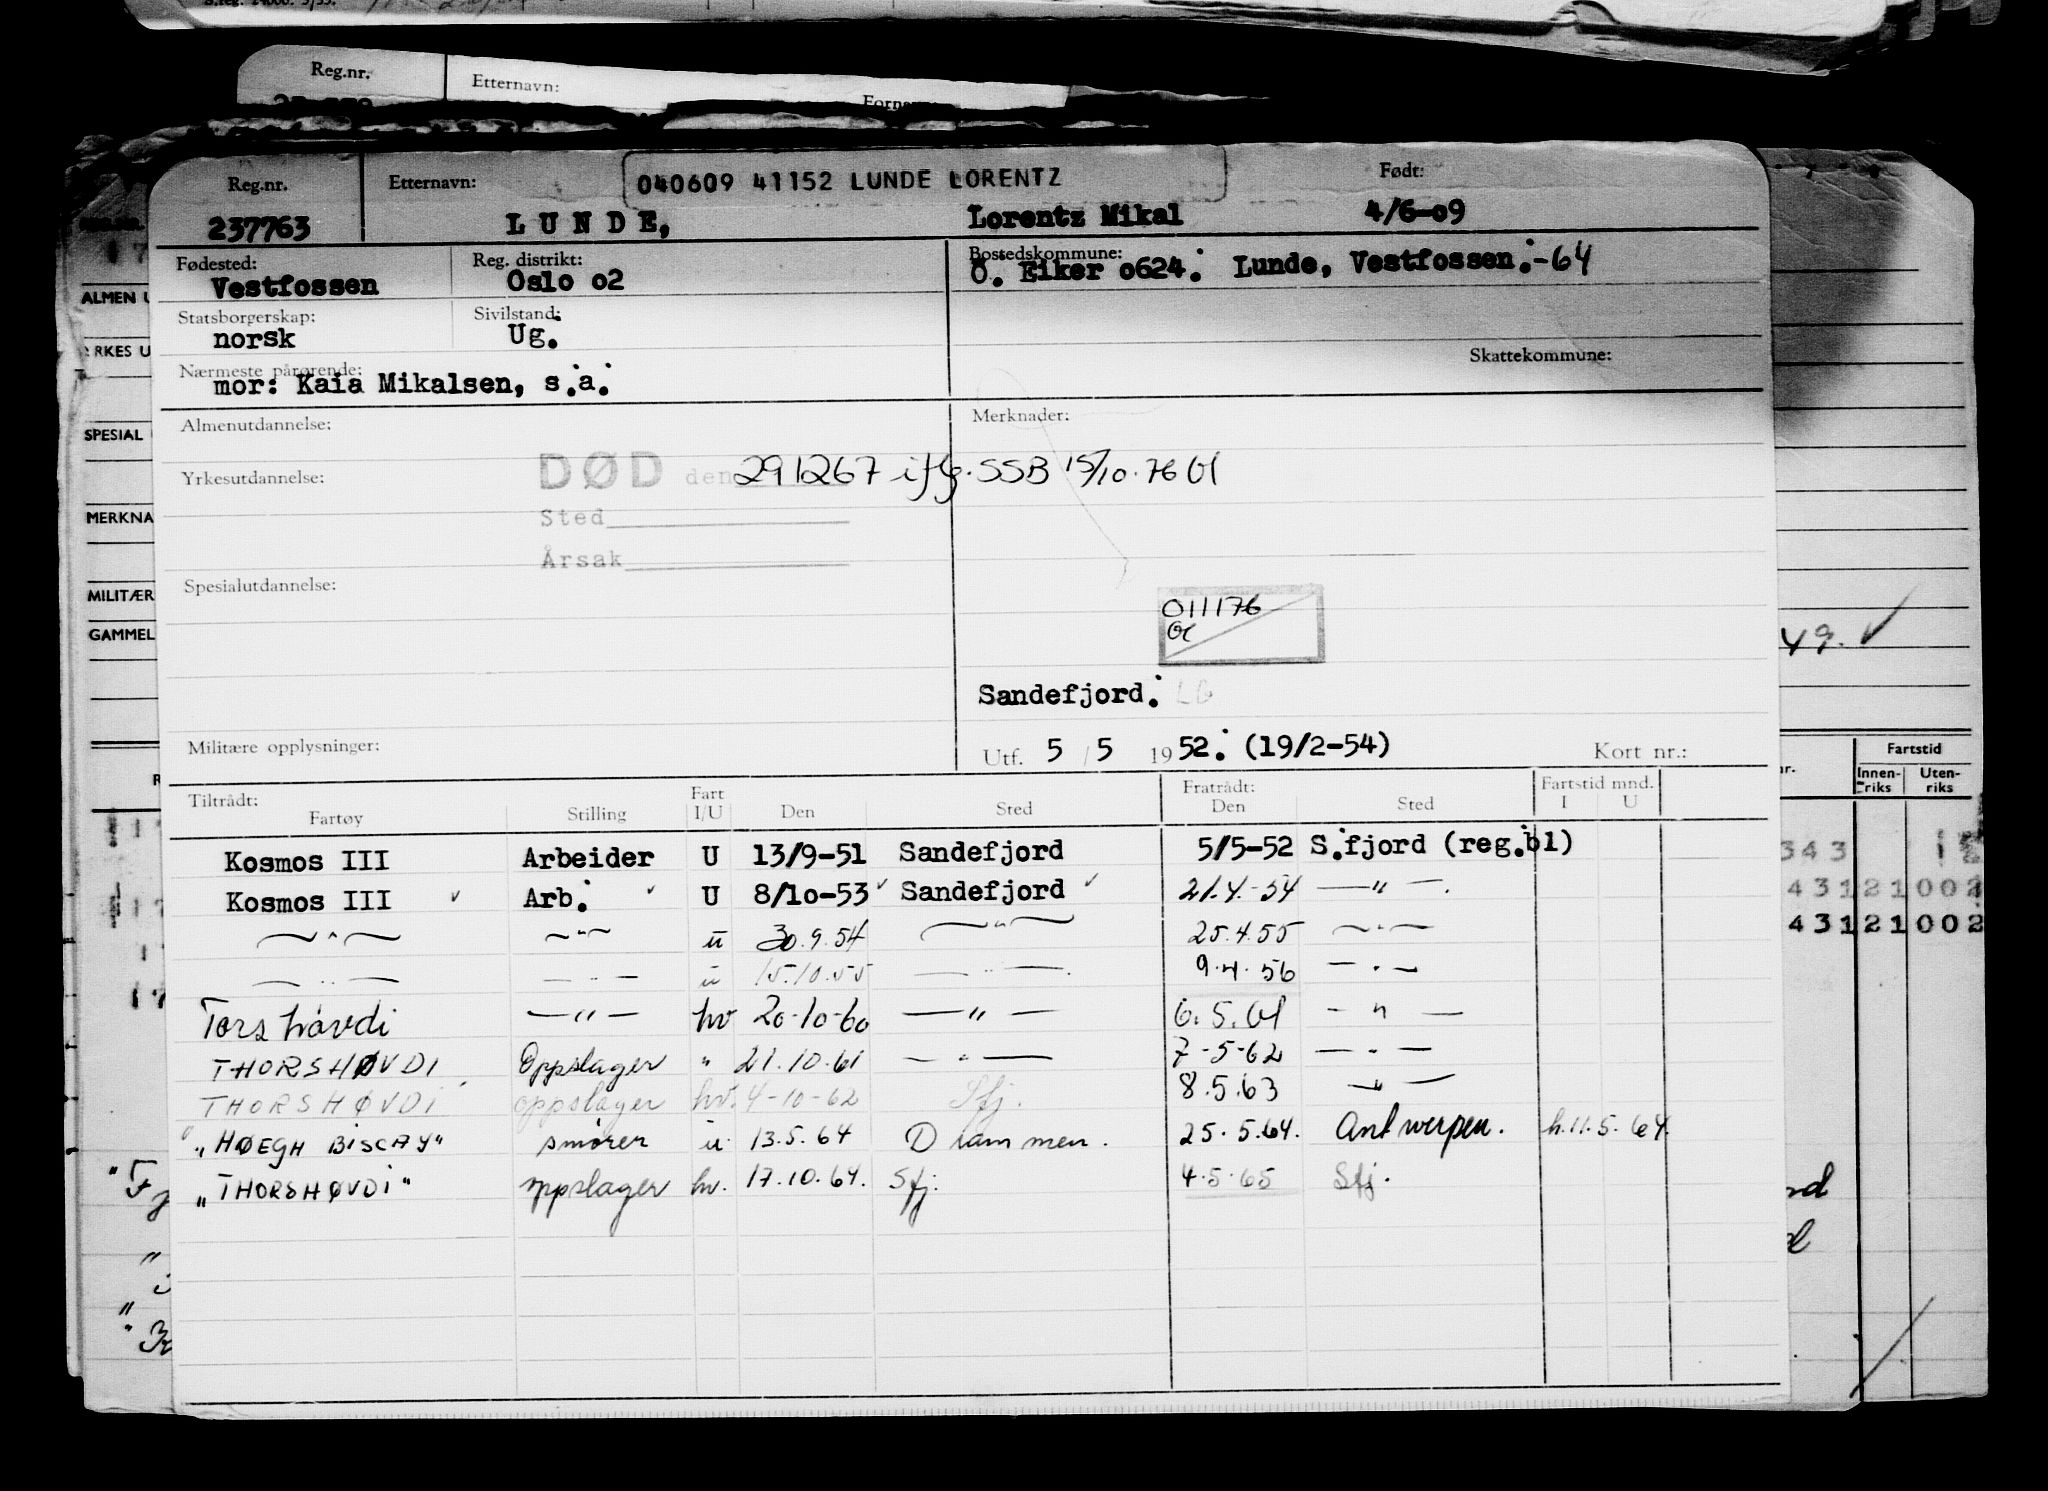 S.reg. 24000. 3/55.
Reg.nr. Etternavn:
ALMEN U
RKES U
SPESIAL
MERKNA
MILITÆR
GAMMEL
49. ✓
Fartstid
Innen-riks Uten-riks
343 12
43121002
43121002
Reg.nr. Etternavn: 040609 41152 LUNDE LORENTZ Født:
237763 LUNDE, Lorentz Mikal 4/6-09
Fødested: Reg. distrikt: Bostedskommune:
Vestfossen Oslo 02 Ö. Eiker 0624. Lunde, Vestfossen.-64
Statsborgerskap: Sivilstand:
norsk Ug.
Nærmeste pårørende: Skattekommune:
mor: Kaia Mikalsen, s.a.
Almenutdannelse: Merknader:
Yrkesutdannelse: DØD den 291267 iflg. SSB 15/10.76 Ol
Sted
Årsak
Spesialutdannelse:
011176
Sandefjord. LG
Militære opplysninger: Utf. 5 / 5 1952. (19/2-54) Kort nr.:
Tiltrådt: Fart Fratrådt: Fartstid mnd.
Fartøy Stilling I/U Den Sted Den Sted I U
Kosmos III Arbeider U 13/9-51 Sandefjord 5/5-52 S.fjord (reg.bl)
Kosmos III ✓ Arb. ✓ U 8/10-53 ✓ Sandefjord ✓ 21.4.-54 — " —.
— " — — " — u 30.9.54 — " — 25.4.55 — " —
— " — — " — u 15.10.55 — " — 9.4.56 — " —
Tors hövdi — " — hv 20-10-60 — " — 6.5.61 — " —
THORSHØVDI Oppslager " 21.10.61 — " — 7-5-62 — " —
THORSHØVDI oppslager hv. 4-10-62 Sfj. 8.5.63 — " —
"HØEGH BISCAY" smører u. 13.5.64 Drammen. 25.5.64. Antwerpen. h.11.5.64.
"THORSHØVDI" oppslager hv. 17.10.64. Sfj. 4.5.65 Sfj.